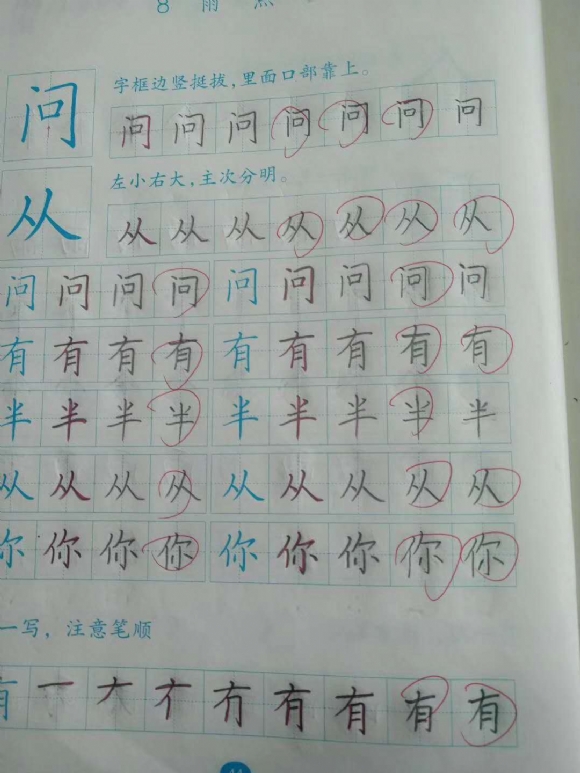 8 雨 点
问
字框边竖挺拔，里面口部靠上。
问 问 问 问 问 问 问
从
左小右大，主次分明。
从 从 从 从 从 从 从
问 问 问 问 问 问 问 问 问
有 有 有 有 有 有 有 有 有
半 半 半 半 半 半 半 半 半
从 从 从 从 从 从 从 从 从
你 你 你 你 你 你 你 你 你
一写，注意笔顺
有 一 𠂇 有 有 有 有